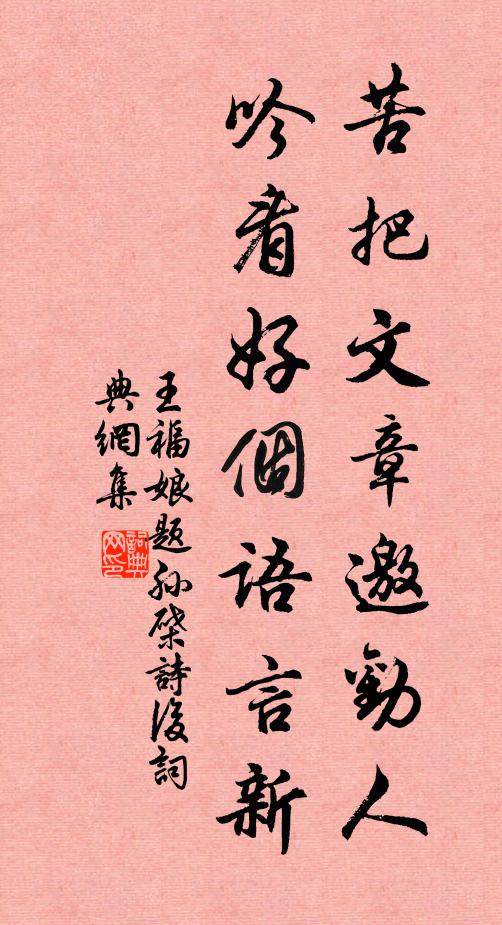 苦把文章邀勸人
吟看好個語言新
王福娘題孫棨詩後詞
典網集
詞典
网印